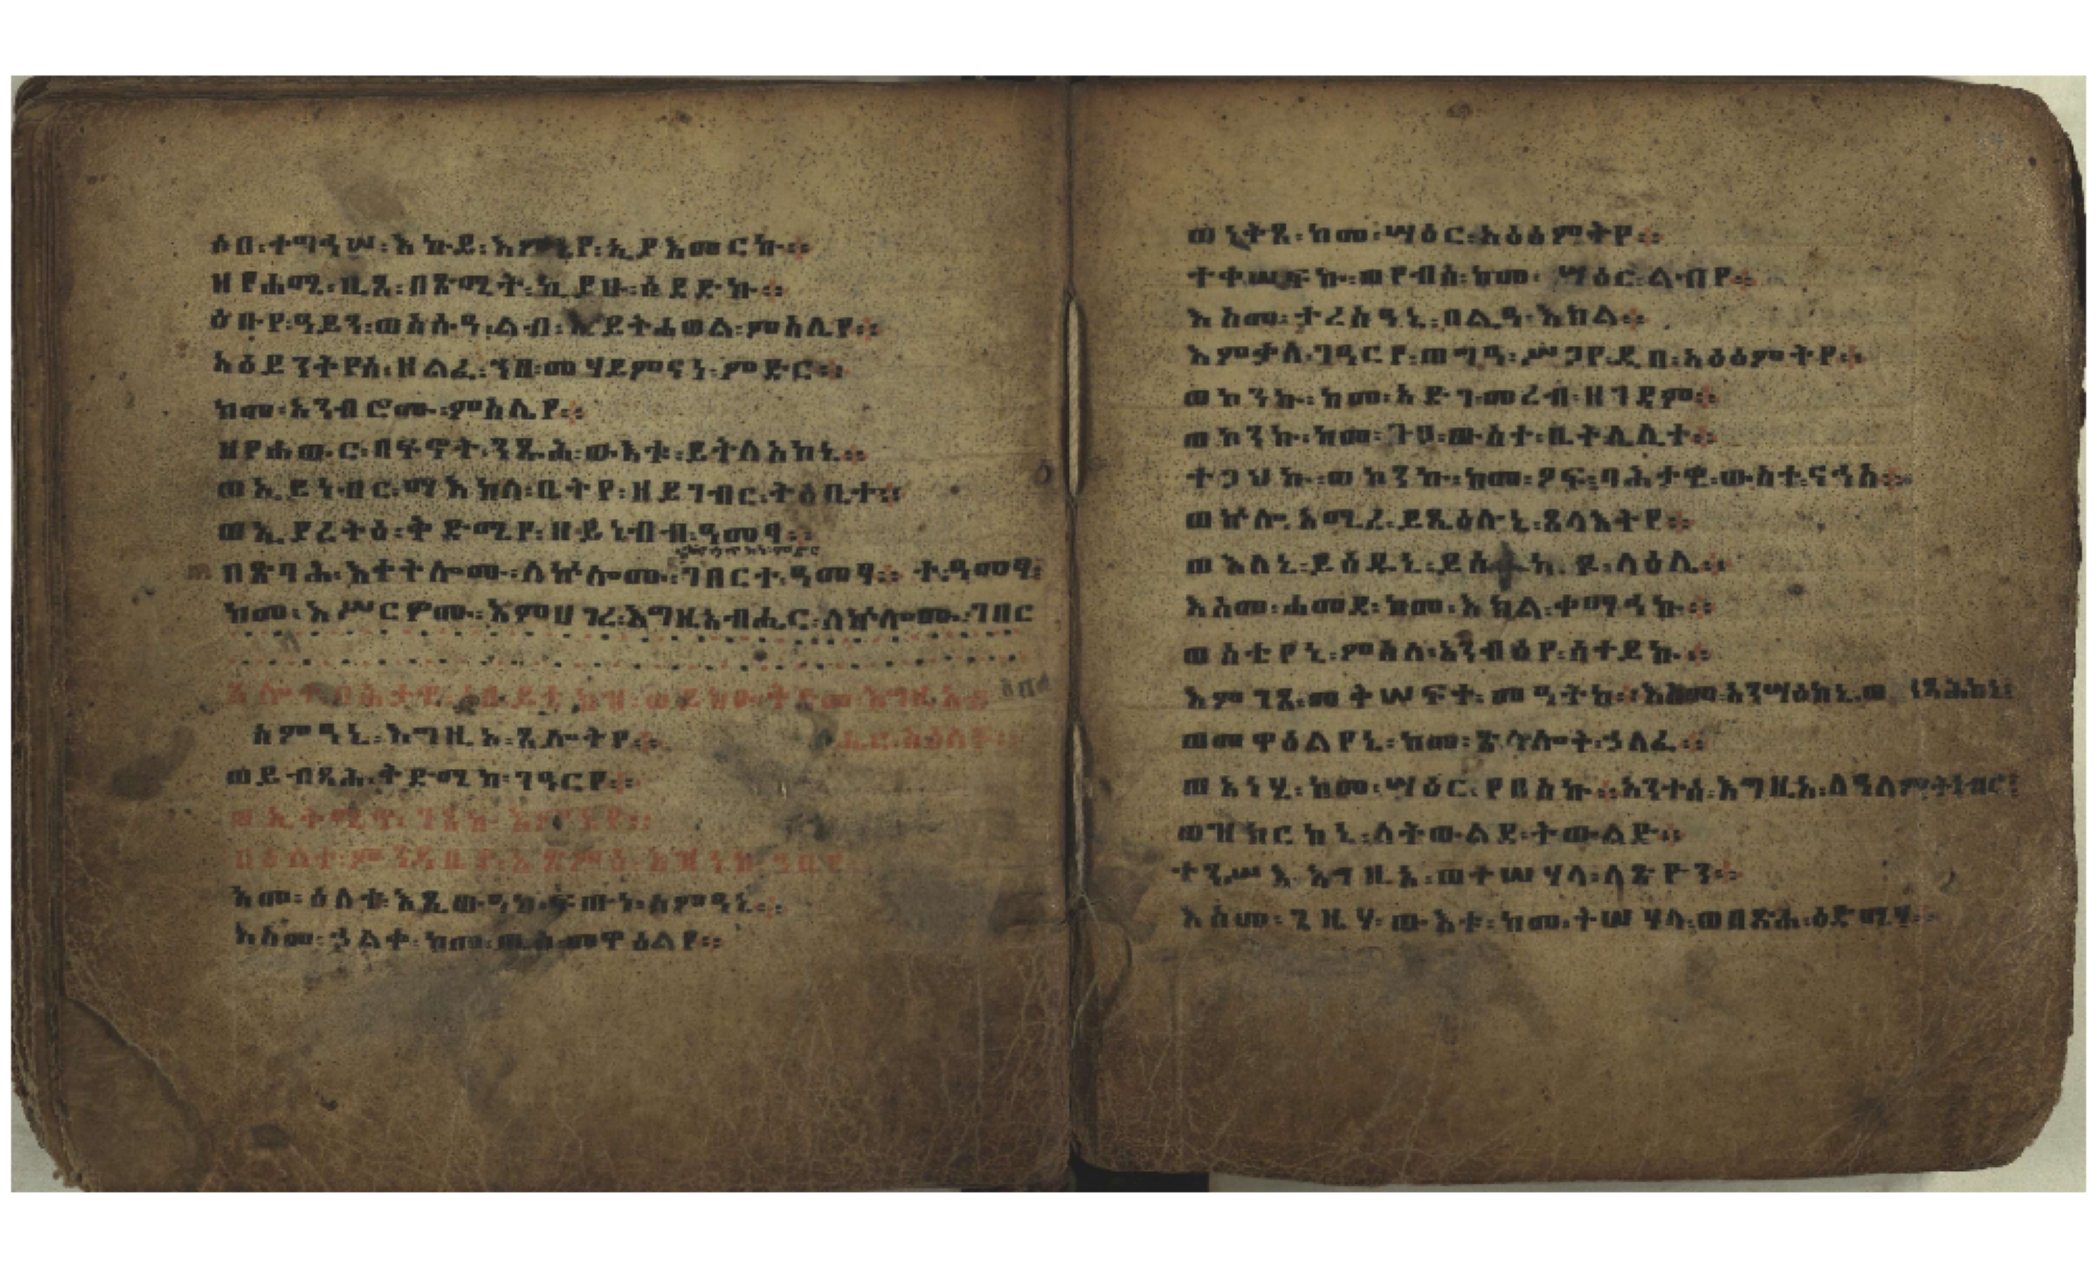 ሶበ፡ተግኅሠ፡እኩይ፡እምኔየ፡ኢያእመርኩ።
ዘየሐሚ፡ቢጾ፡በጽሚት፡ኪያሁ፡ሰደድኩ።
ዕቡየ፡ዓይን፡ወስሱዓ፡ልብ፡ኢይትሐወል፡ምስሌየ።
አዕይንትየሰ፡ዘልፈ፡ኀበ፡መሃይምናነ፡ምድር።
ከመ፡አንብሮሙ፡ምስሌየ።
ዘየሐውር፡በፍኖት፡ንጹሕ፡ውእቱ፡ይትለአከኒ።
ወኢይነብር፡ማእከለ፡ቤትየ፡ዘይገብር፡ትዕቢተ።
ወኢያረትዕ፡ቅድሜየ፡ዘይነብብ፡ዓመፃ።
በጽባሕ፡እቀትሎሙ፡ለኵሎሙ፡ገበርተ፡ዓመፃ። ተ፡ዓመፃ፡
ከመ፡እሥርዎሙ፡እምሀገረ፡እግዚአብሔር፡ለኵሎሙ፡ገበር
ስምዓኒ፡እግዚኦ፡ጸሎትየ።
ወይብጻሕ፡ቅድሜከ፡ገዓርየ።
በዕለተ፡ምንዳቤየ፡አጽምዕ፡እዝነከ፡ኀቤየ።
አመ፡ዕለተ፡እጼውዓከ፡ፍጡነ፡ስምዓኒ።
እስመ፡ኃልቀ፡ከመ፡ጢስ፡መዋዕልየ።
ወነትጸ፡ከመ፡ሣዕር፡አዕፅምትየ።
ተቀሠፍኩ፡ወየብሰ፡ከመ፡ሣዕር፡ልብየ።
እስመ፡ተረስዓኒ፡በሊዓ፡እክል።
እምቃለ፡ገዓርየ፡ወግዓ፡ሥጋየ፡ዲበ፡አዕፅምትየ።
ወኮንኩ፡ከመ፡አድገ፡መረብ፡ዘገዳም።
ወኮንኩ፡ከመ፡ጉጓ፡ውስተ፡ቤት፡ሌሊተ።
ተጋህኩ፡ወኮንኩ፡ከመ፡ዖፍ፡ባሕታዊ፡ውስተ፡ናኅስ።
ወኵሎ፡አሚረ፡ይጼዕሉኒ፡ጸላእትየ።
ወእለኒ፡ይፀዱኒ፡ይሰ ላዕሌ።
እስመ፡ሐመደ፡ከመ፡እክል፡ቀማኅኩ።
ወስቴየኒ፡ምስለ፡አንብዕየ፡ሰተይኩ።
እምገጸ፡መቅሠፍተ፡መዓትከ።እስመ፡አንሣእከኒ፡ወ
ወመዋዕልየኒ፡ከመ፡ጽላሎት፡ኃለፈ።
ወአነሂ፡ከመ፡ሣዕር፡የበስኩ።አንተሰ፡እግዚኦ፡ለዓለም፡ትነብር
ወዝክርከኒ፡ለትውልደ፡ትውልድ።
ተንሥእ፡እግዚኦ፡ወተሠሃላ፡ለጽዮን።
እስመ፡ጊዜሃ፡ውእቱ፡ከመ፡ትሠሃላ፡ወበጽሐ፡ዕድሜሃ።